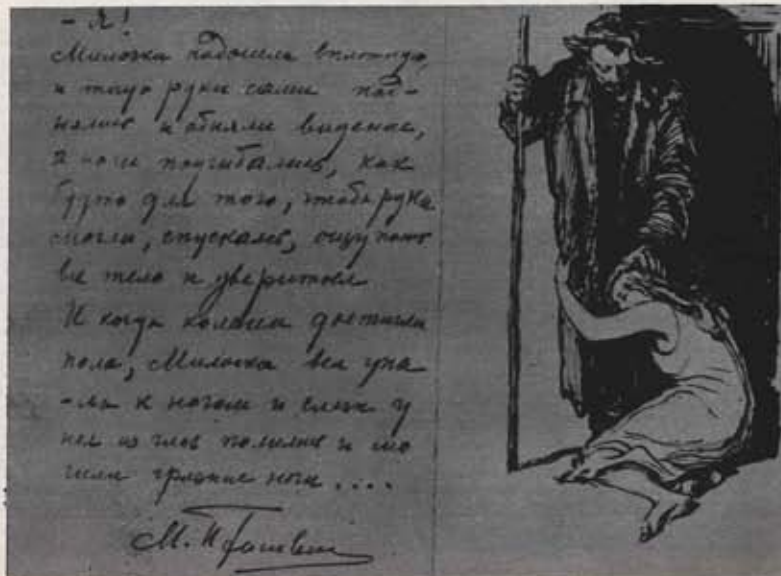 - Я!
Милочка подошла вплотную,
и тут руки сами под-
нялись и обняли видение,
а ноги подгибались, как
будто для того, чтобы руки
могли, спускаясь, ощупать
все тело и увериться.
И когда колени достигли
пола, Милочка вся упа-
-ла к ногам и слезы у
нея из глаз полились и мо
чили грязные ноги ....
М. Пришвин